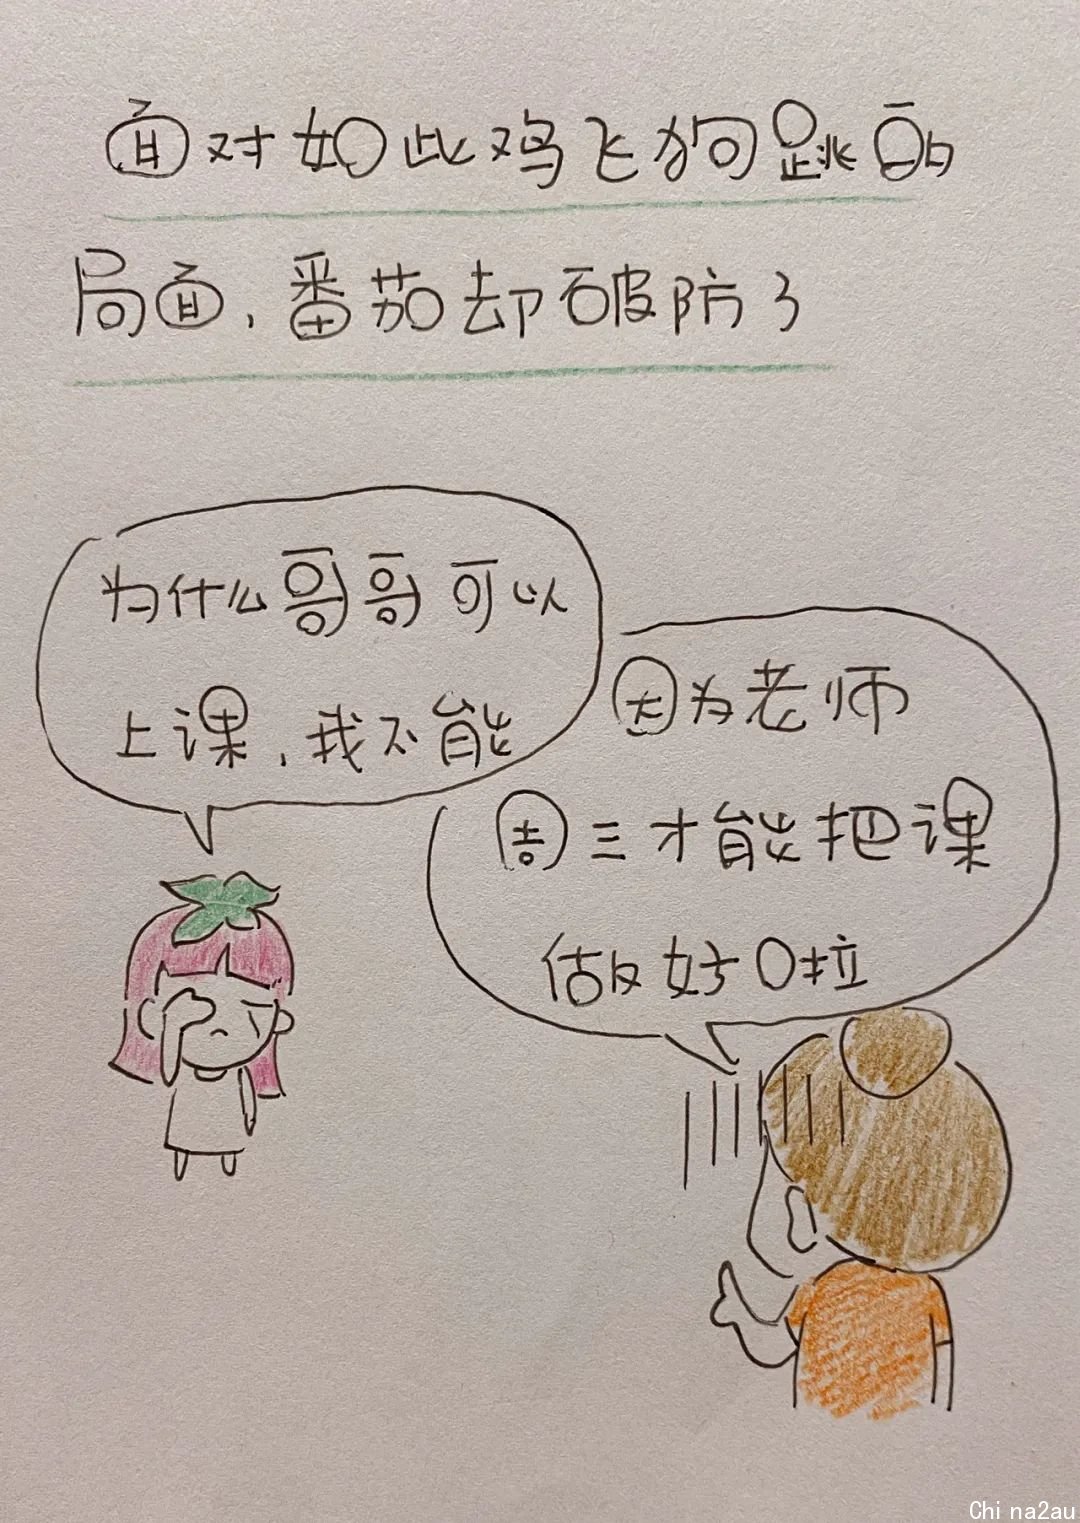 面对如此鸡飞狗跳的
局面，番茄却破防了
为什么哥哥可以
上课，我不能
因为老师
周三才能把课
做好啦
Chi na2au